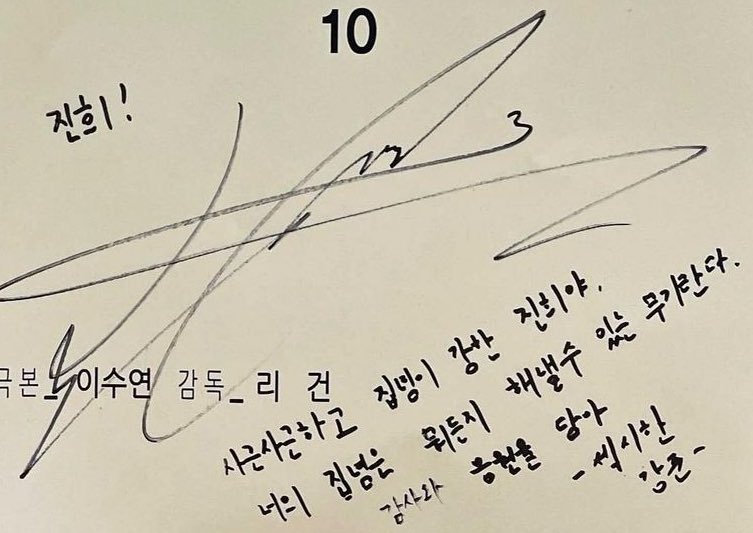 10
진희!
극본_ 이수연 감독_ 리 건
사근사근하고 집념이 강한 진희야.
너의 집념은 뭐든지 해낼수 있는 무기란다.
감사와 응원을 담아
-섹시한
강준-